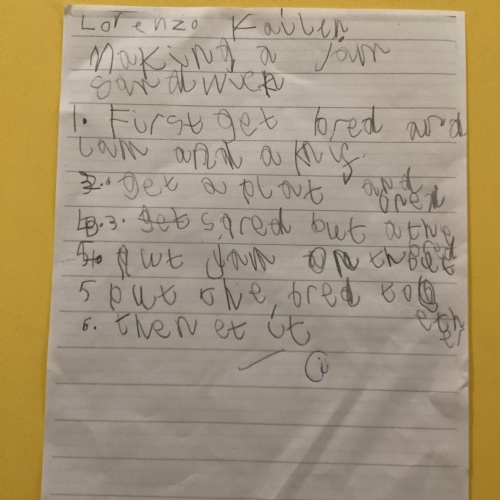 Lorenzo Kailen
Making a jam
sandwich
1. First get bred and
jam and a knif.
2. get a plat and
bred
3. get spred but a the
put jam on the
5 put the bred tog
eth
er
6. then et it